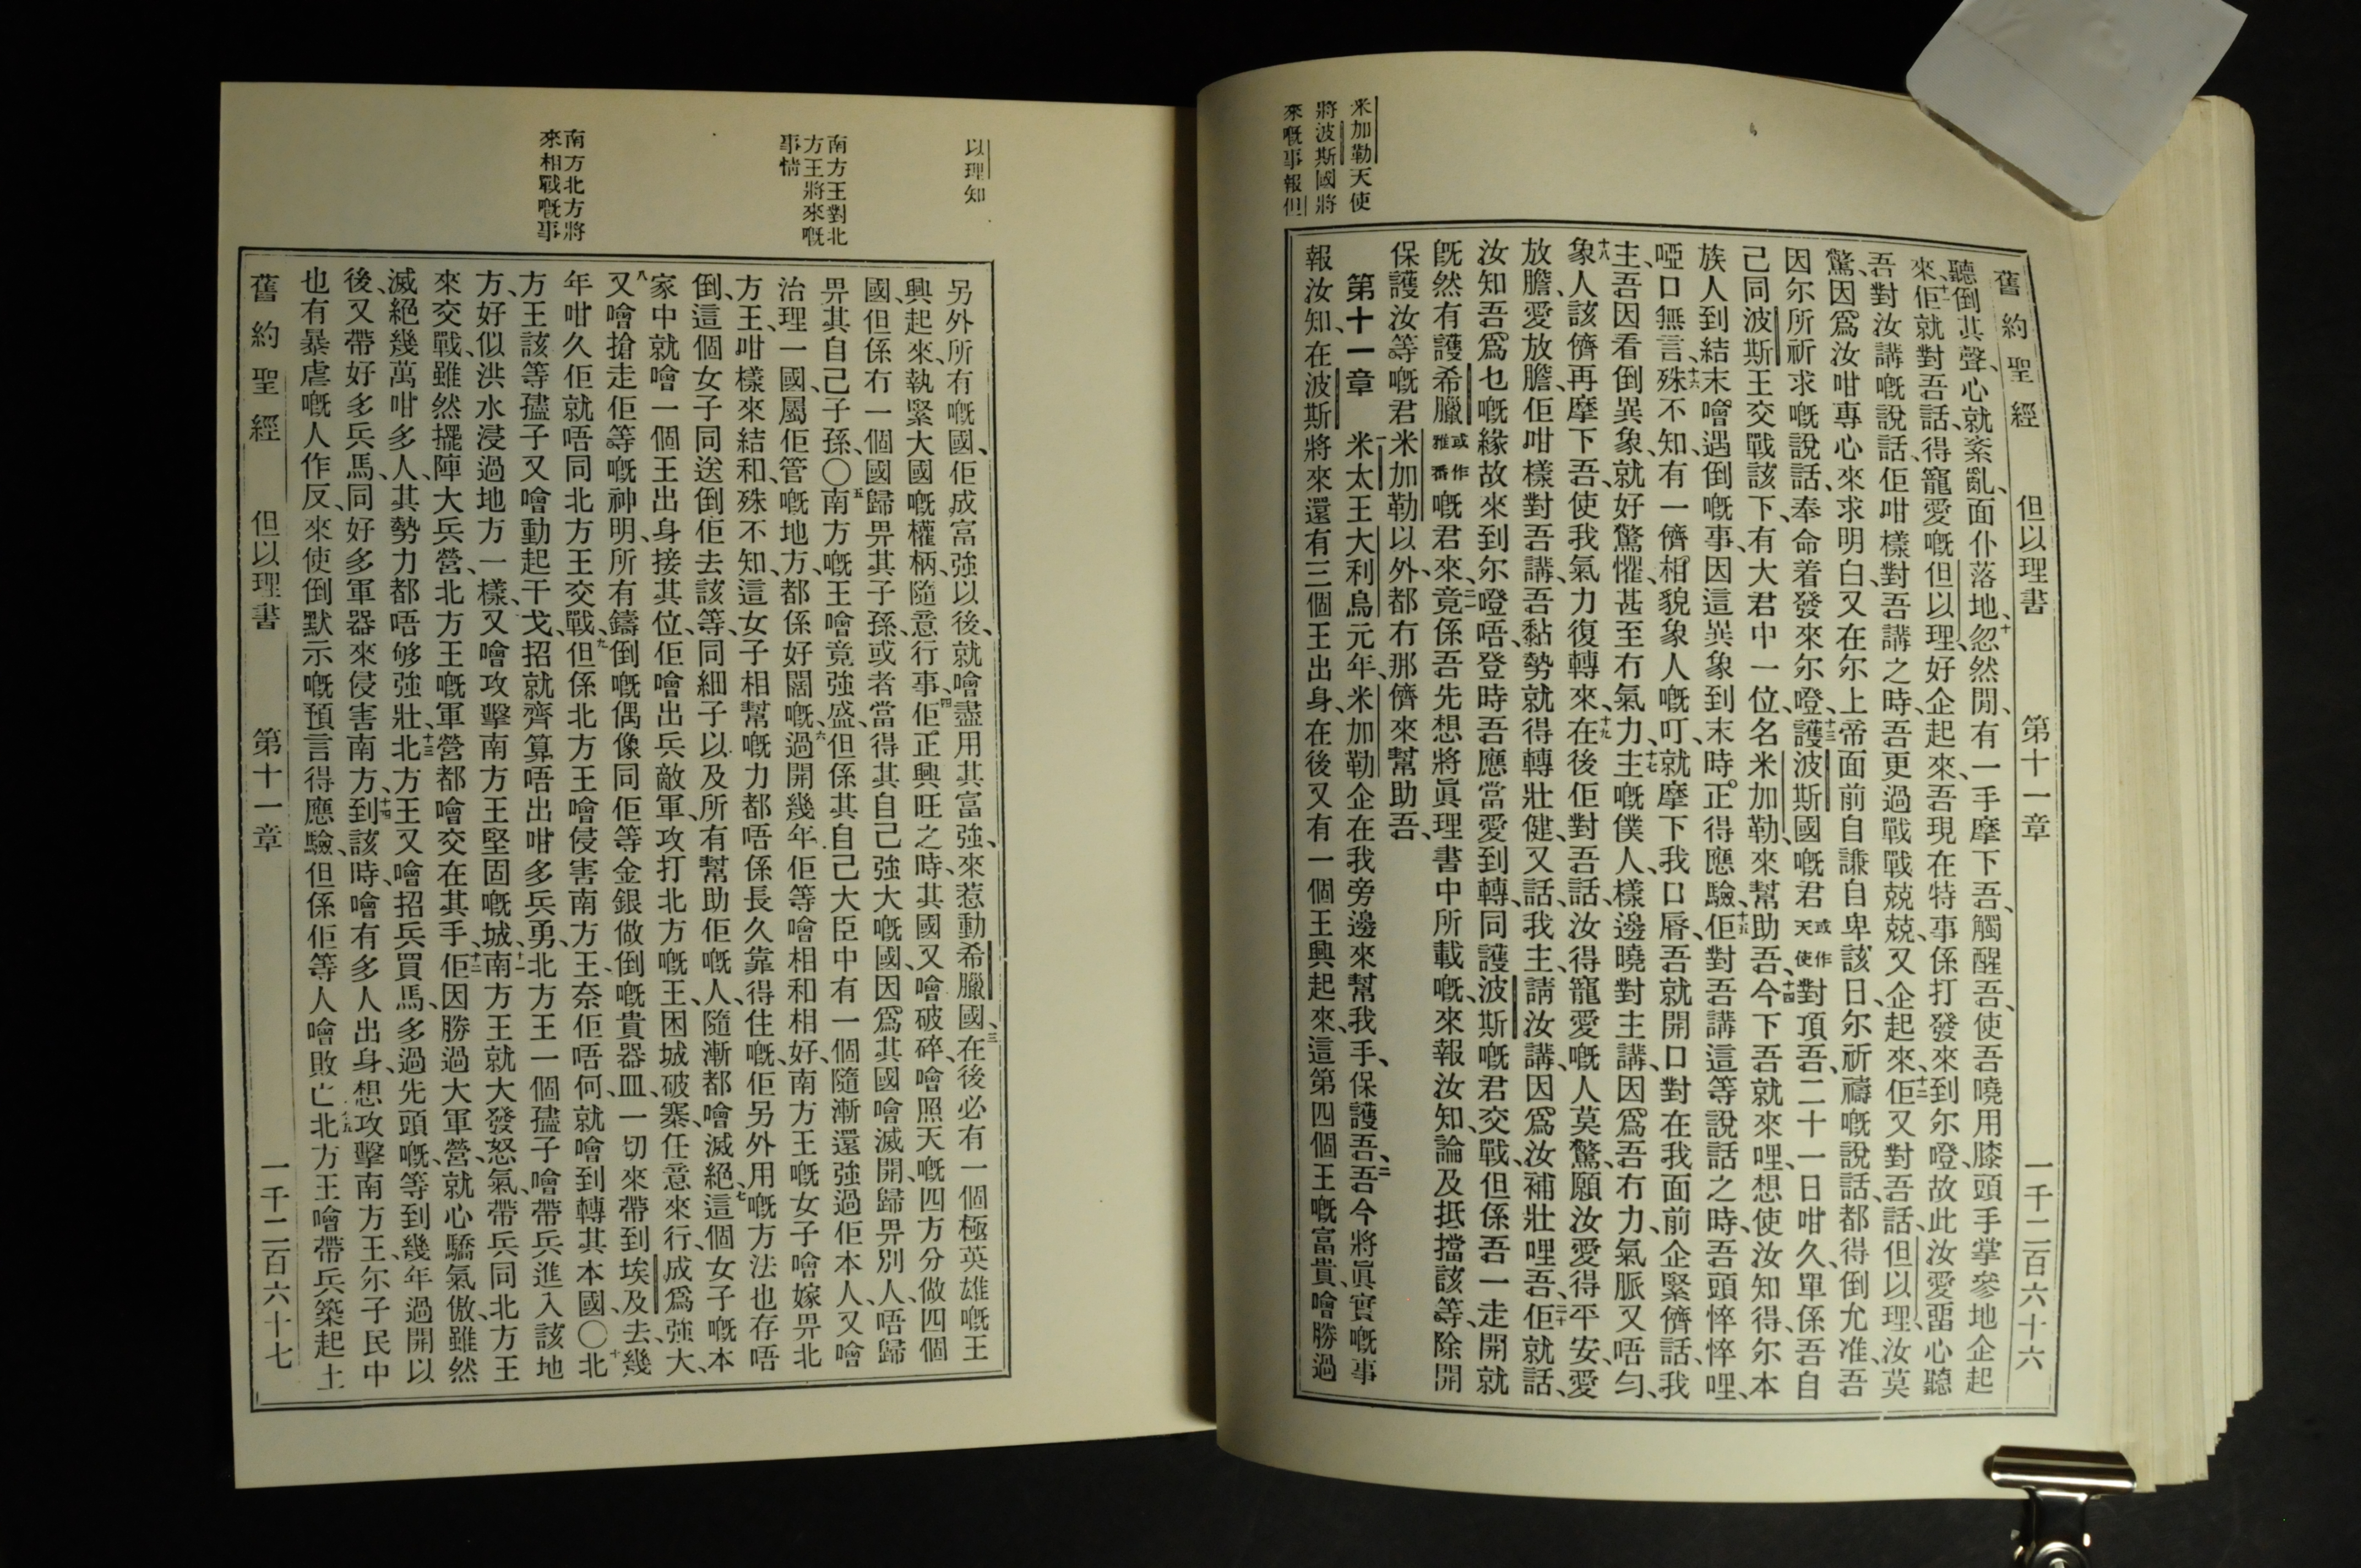 舊約聖經 但以理書 第十一章 一千二百六十六
聽倒其聲、心就紊亂、面仆落地、十忽然間、有一手摩下吾、觸醒吾、使吾曉用膝頭手掌參地企起
來、十一佢就對吾話、得寵愛嘅但以理、好企起來、吾現在特事係打發來到尔嶝、故此汝愛畱心聽
吾對汝講嘅說話、佢咁樣對吾講之時、吾更過戰戰兢兢、又企起來、十二佢又對吾話、但以理、汝莫
驚、因爲汝咁專心來求明白、又在尔上帝面前自謙自卑、該日、尔祈禱嘅說話、都得倒允准、吾
因尔所祈求嘅說話、奉命着發來尔嶝、十三護波斯國嘅君或作天使對頂吾、二十一日咁久、單係吾自
己同波斯王交戰、該下、有大君中一位、名米加勒、來幫助吾、十四今下吾就來哩、想使汝知得、尔本
族人到結末、噲遇倒嘅事、因這異象到末時、正得應驗、十五佢對吾講這等說話之時、吾頭悴悴哩、
啞口無言、十六殊不知、有一儕、相貌象人嘅叮、就摩下我口脣、吾就開口對在我面前企緊儕話、我
主、吾因看倒異象、就好驚懼、甚至冇氣力、十七主嘅僕人、樣邊曉對主講、因爲吾冇力、氣脈又唔勻、
十八象人該儕再摩下吾、使我氣力復轉來、十九在後佢對吾話、汝得寵愛嘅人莫驚、願汝愛得平安、愛
放膽、愛放膽、佢咁樣對吾講、吾黏勢就得轉壯健、又話、我主、請汝講、因爲汝補壯哩吾、二十佢就話、
汝知吾爲乜嘅緣故來到尔嶝唔、登時吾應當愛到轉、同護波斯嘅君交戰、但係吾一走開、就
旣然有護希臘或作雅番嘅君來、二一竟係吾先想將眞理書中所載嘅、來報汝知、論及抵擋該等、除開
保護汝等嘅君米加勒以外、都冇那儕來幫助吾、
第十一章 一米太王大利烏元年、米加勒企在我旁邊來幫我手、保護吾、二吾今將眞實嘅事
報汝知、在波斯將來還有三個王出身、在後又有一個王興起來、這第四個王嘅富貴、噲勝過
米加勒天使
將波斯國將
來嘅事報但
以理知
南方王對北
方王將來嘅
事情
南方北方將
來相戰嘅事
另外所有嘅國、佢成富強以後、就噲盡用其富強、來惹動希臘國、三在後必有一個極英雄嘅王
興起來、執緊大國嘅權柄、隨意行事、四佢正興旺之時、其國又噲破碎、噲照天嘅四方分做四個
國、但係冇一個國歸畀其子孫、或者當得其自己強大嘅國、因爲其國噲滅開、歸畀別人、唔歸
畀其自己子孫、〇五南方嘅王噲竟強盛、但係其自己大臣中有一個隨漸還強過佢本人、又噲
治理一國、屬佢管嘅地方、都係好闊嘅、六過開幾年、佢等噲相和相好、南方王嘅女子噲嫁畀北
方王、咁樣來結和、殊不知、這女子相幫嘅力都唔係長久靠得住嘅、佢另外用嘅方法也存唔
倒、這個女子同送倒佢去該等、同細子以及所有幫助佢嘅人、隨漸都噲滅絕、七這個女子嘅本
家中就噲一個王出身、接其位、佢噲出兵敵軍、攻打北方嘅王、困城破寨、任意來行、成爲強大、
八又噲搶走佢等嘅神明、所有鑄倒嘅偶像、同佢等金銀做倒嘅貴器皿、一切來帶到埃及去、幾
年咁久佢就唔同北方王交戰、九但係北方王噲侵害南方王、奈佢唔何、就噲到轉其本國、〇十北
方王該等孻子又噲動起干戈、招就齊算唔出咁多兵勇、北方王一個孻子、噲帶兵進入該地
方、好似洪水浸過地方一樣、又噲攻擊南方王堅固嘅城、十一南方王就大發怒氣、帶兵同北方王
來交戰、雖然擺陣大兵營、北方王嘅軍營都噲交在其手、十二佢因勝過大軍營、就心驕氣傲、雖然
滅絕幾萬咁多人、其勢力都唔够強壯、十三北方王又噲招兵買馬、多過先頭嘅、等到幾年過開以
後、又帶好多兵馬、同好多軍器來侵害南方、十四到該時、噲有多人出身、想攻擊南方王、尔子民中
也有暴虐嘅人作反、來使倒默示嘅預言得應驗、但係佢等人噲敗亡、十五北方王噲帶兵築起土
舊約聖經 但以理書 第十一章 一千二百六十七